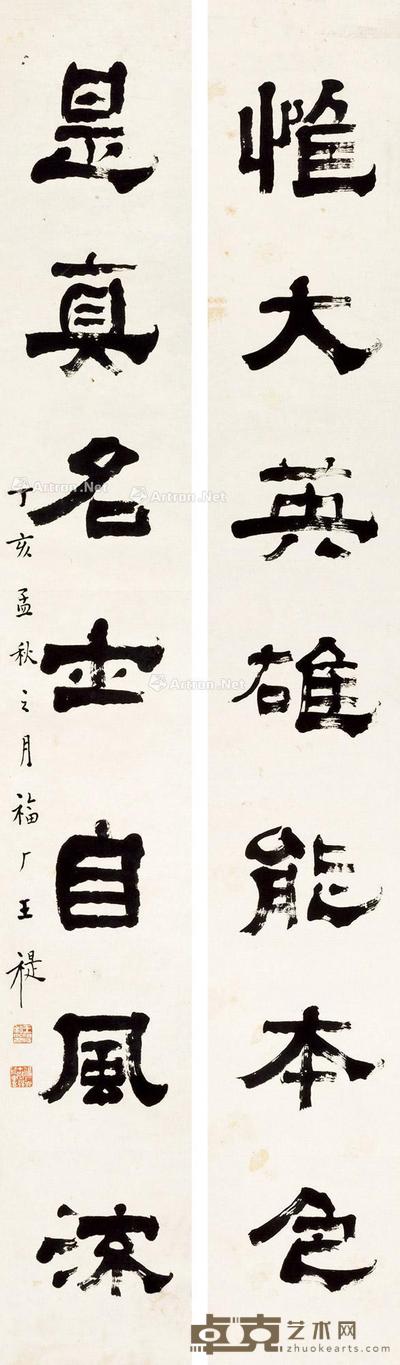 惟大英雄能本色
是真名士自風流
丁亥孟秋之月福厂王禔
Artron.Net
Artron.Net
Artron.Net
Artron.Net
卓克艺术网
zhuokearts.com